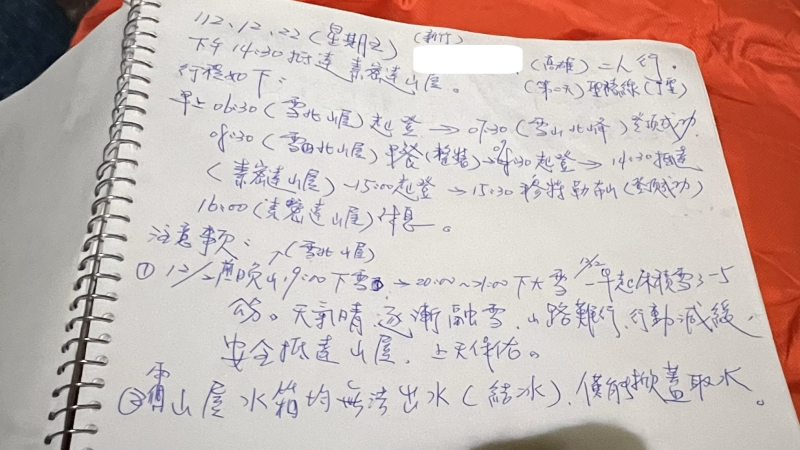 112、12、22(星期五)(新竹)
(高雄)二人行。
下午14:30抵達素密達山屋。(第二天)聖稜線(丁型)
行程如下:
早上06:30(雪北山屋)起登→07:30(雪山北峰)登頂成功
08:30(雪北山屋)早餐(整裝)→09:30起登→14:30抵達
(素密達山屋)-15:00起登→15:30穆特勒布山(登頂成功)
16:00(素密達山屋)休息。
注意事項: (雪北山屋)
① 12/21晚山19:00下雪→20:00~21:00下大雪 12/22早起床積雪3-5
公分。天氣晴,逐漸融雪,山路難行,行動減緩,
安全抵達山屋,上天保佑。
② 兩山屋水箱均無法出水(結冰),僅能掀蓋取水。